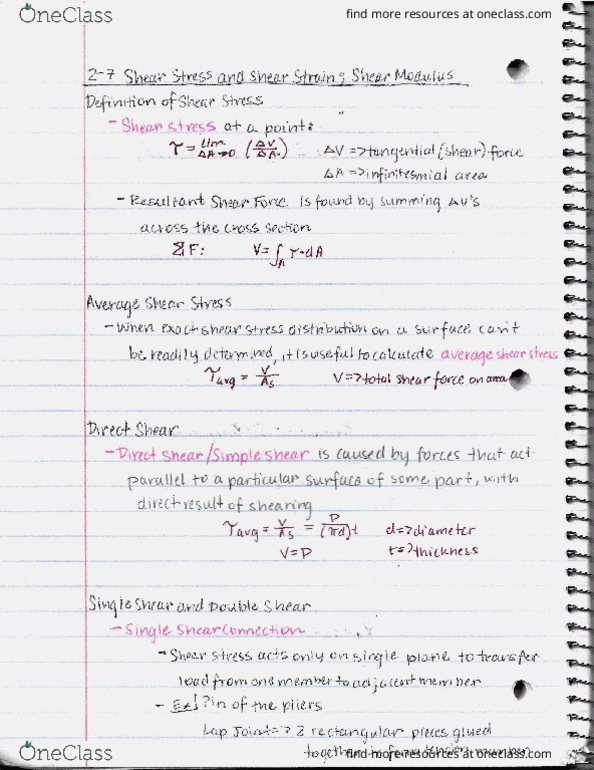 OneClass
find more resources at oneclass.com
2-7 Shear Stress and Shear Strain; Shear Modulus
Definition of Shear Stress
- Shear stress at a point:
τ = lim ΔA→0 (ΔV/ΔA) ΔV => tangential (shear) force
ΔA => infinitesmial area
- Resultant Shear Force is found by summing ΔV's
across the cross section
ΣF: V = ∫A τ·dA
Average Shear Stress
- When exact shear stress distribution on a surface can't
be readily determined, it is useful to calculate average shear stress
τavg = V/As V => total shear force on area
Direct Shear
- Direct shear/Simple shear is caused by forces that act
parallel to a particular surface of some part, with
direct result of shearing
τavg = V/As = P/(πd)t d => diameter
V = P t => thickness
Single Shear and Double Shear
- Single Shear Connection
- Shear stress acts only on single plane to transfer
load from one member to adjacent member
- Ex] Pin of the pliers
Lap Joint => 2 rectangular pieces glued
together to form tension member
OneClass
find more resources at oneclass.com